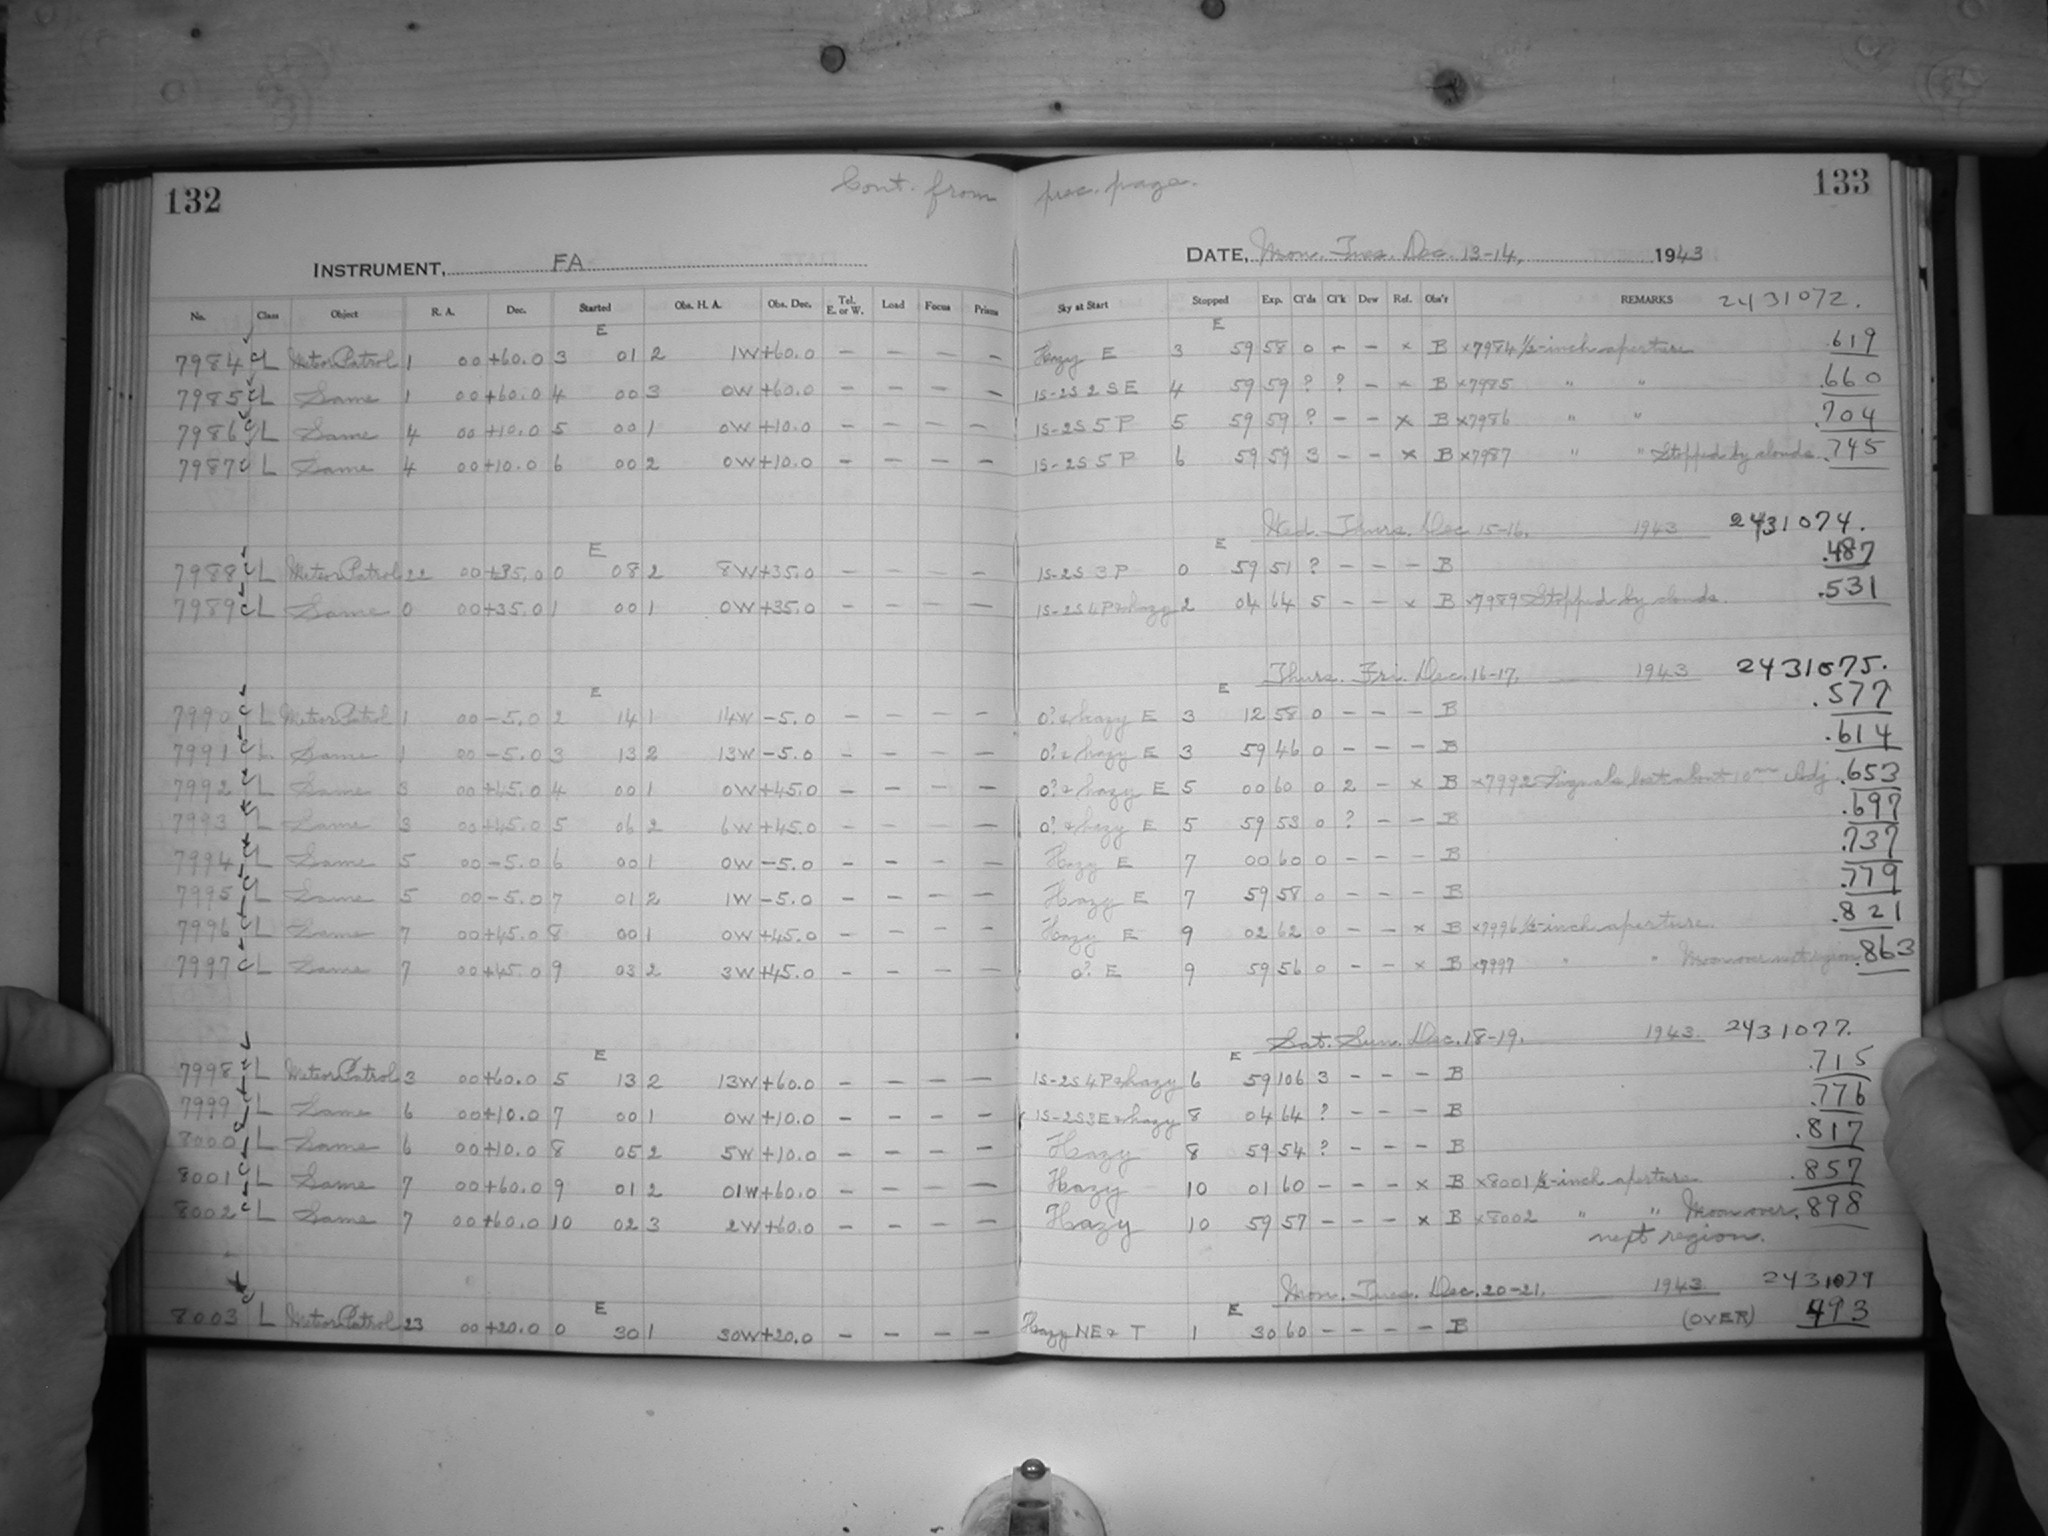 132 Cont. from prec. page. 133
INSTRUMENT, FA DATE, Mon. Tues. Dec. 13-14, 1943
No. Class Object R. A. Dec. Started Obs. H. A. Obs. Dec. Tel. E. or W. Load Focus Prisms Sky at Start Stopped Exp. Cl'ds Cl'k Dew Ref. Obs'r REMARKS 2431072.
E E
7984 L Meteor Patrol 1 00 +60.0 3 01 2 1W +60.0 – – – – Hazy E 3 59 58 0 – – × B ×7984 1/2-inch aperture .619
7985 L Same 1 00 +60.0 4 00 3 0W +60.0 – – – – 1S-2S 2 S E 4 59 59 ? ? – × B ×7985 " " .660
7986 L Same 4 00 +10.0 5 00 1 0W +10.0 – – – – 1S-2S 5 P 5 59 59 ? – – × B ×7986 " " .704
7987 L Same 4 00 +10.0 6 00 2 0W +10.0 – – – – 1S-2S 5 P 6 59 59 3 – – × B ×7987 " " Stopped by clouds .745
Wed. Thurs. Dec. 15-16, 1943 2431074.
E E
7988 L Meteor Patrol 22 00 +35.0 0 08 2 8W +35.0 – – – – 1S-2S 3 P 0 59 51 ? – – – B .487
7989 L Same 0 00 +35.0 1 00 1 0W +35.0 – – – – 1S-2S 4 P & hazy 2 04 64 5 – – × B ×7989 Stopped by clouds. .531
Thurs. Fri. Dec. 16-17, 1943 2431075.
E E
7990 L Meteor Patrol 1 00 –5.0 2 14 1 14W –5.0 – – – – 0? & hazy E 3 12 58 0 – – – B .577
7991 L Same 1 00 –5.0 3 13 2 13W –5.0 – – – – 0? & hazy E 3 59 46 0 – – – B .614
7992 L Same 3 00 +45.0 4 00 1 0W +45.0 – – – – 0? & hazy E 5 00 60 0 2 – × B ×7992 Signals lost about 10m Adj. .653
7993 L Same 3 00 +45.0 5 06 2 6W +45.0 – – – – 0? & hazy E 5 59 53 0 ? – – B .697
7994 L Same 5 00 –5.0 6 00 1 0W –5.0 – – – – Hazy E 7 00 60 0 – – – B .737
7995 L Same 5 00 –5.0 7 01 2 1W –5.0 – – – – Hazy E 7 59 58 0 – – – B .779
7996 L Same 7 00 +45.0 8 00 1 0W +45.0 – – – – Hazy E 9 02 62 0 – – × B ×7996 1/2-inch aperture. .821
7997 L Same 7 00 +45.0 9 03 2 3W +45.0 – – – – 0? E 9 59 56 0 – – × B ×7997 " " Moon over next region .863
Sat. Sun. Dec. 18-19, 1943. 2431077.
E E
7998 L Meteor Patrol 3 00 +60.0 5 13 2 13W +60.0 – – – – 1S-2S 4 P & hazy 6 59 106 3 – – – B .715
7999 L Same 6 00 +10.0 7 00 1 0W +10.0 – – – – 1S-2S 3 E & hazy 8 04 64 ? – – – B .776
8000 L Same 6 00 +10.0 8 05 2 5W +10.0 – – – – Hazy 8 59 54 ? – – – B .817
8001 L Same 7 00 +60.0 9 01 2 01W +60.0 – – – – Hazy 10 01 60 – – – × B ×8001 1/2-inch aperture .857
8002 L Same 7 00 +60.0 10 02 3 2W +60.0 – – – – Hazy 10 59 57 – – – × B ×8002 " " Moon over .898
next region.
Mon. Tues. Dec. 20-21, 1943 2431079
E E
8003 L Meteor Patrol 23 00 +20.0 0 30 1 30W +20.0 – – – – Hazy NE & T 1 30 60 – – – – B (OVER) .493